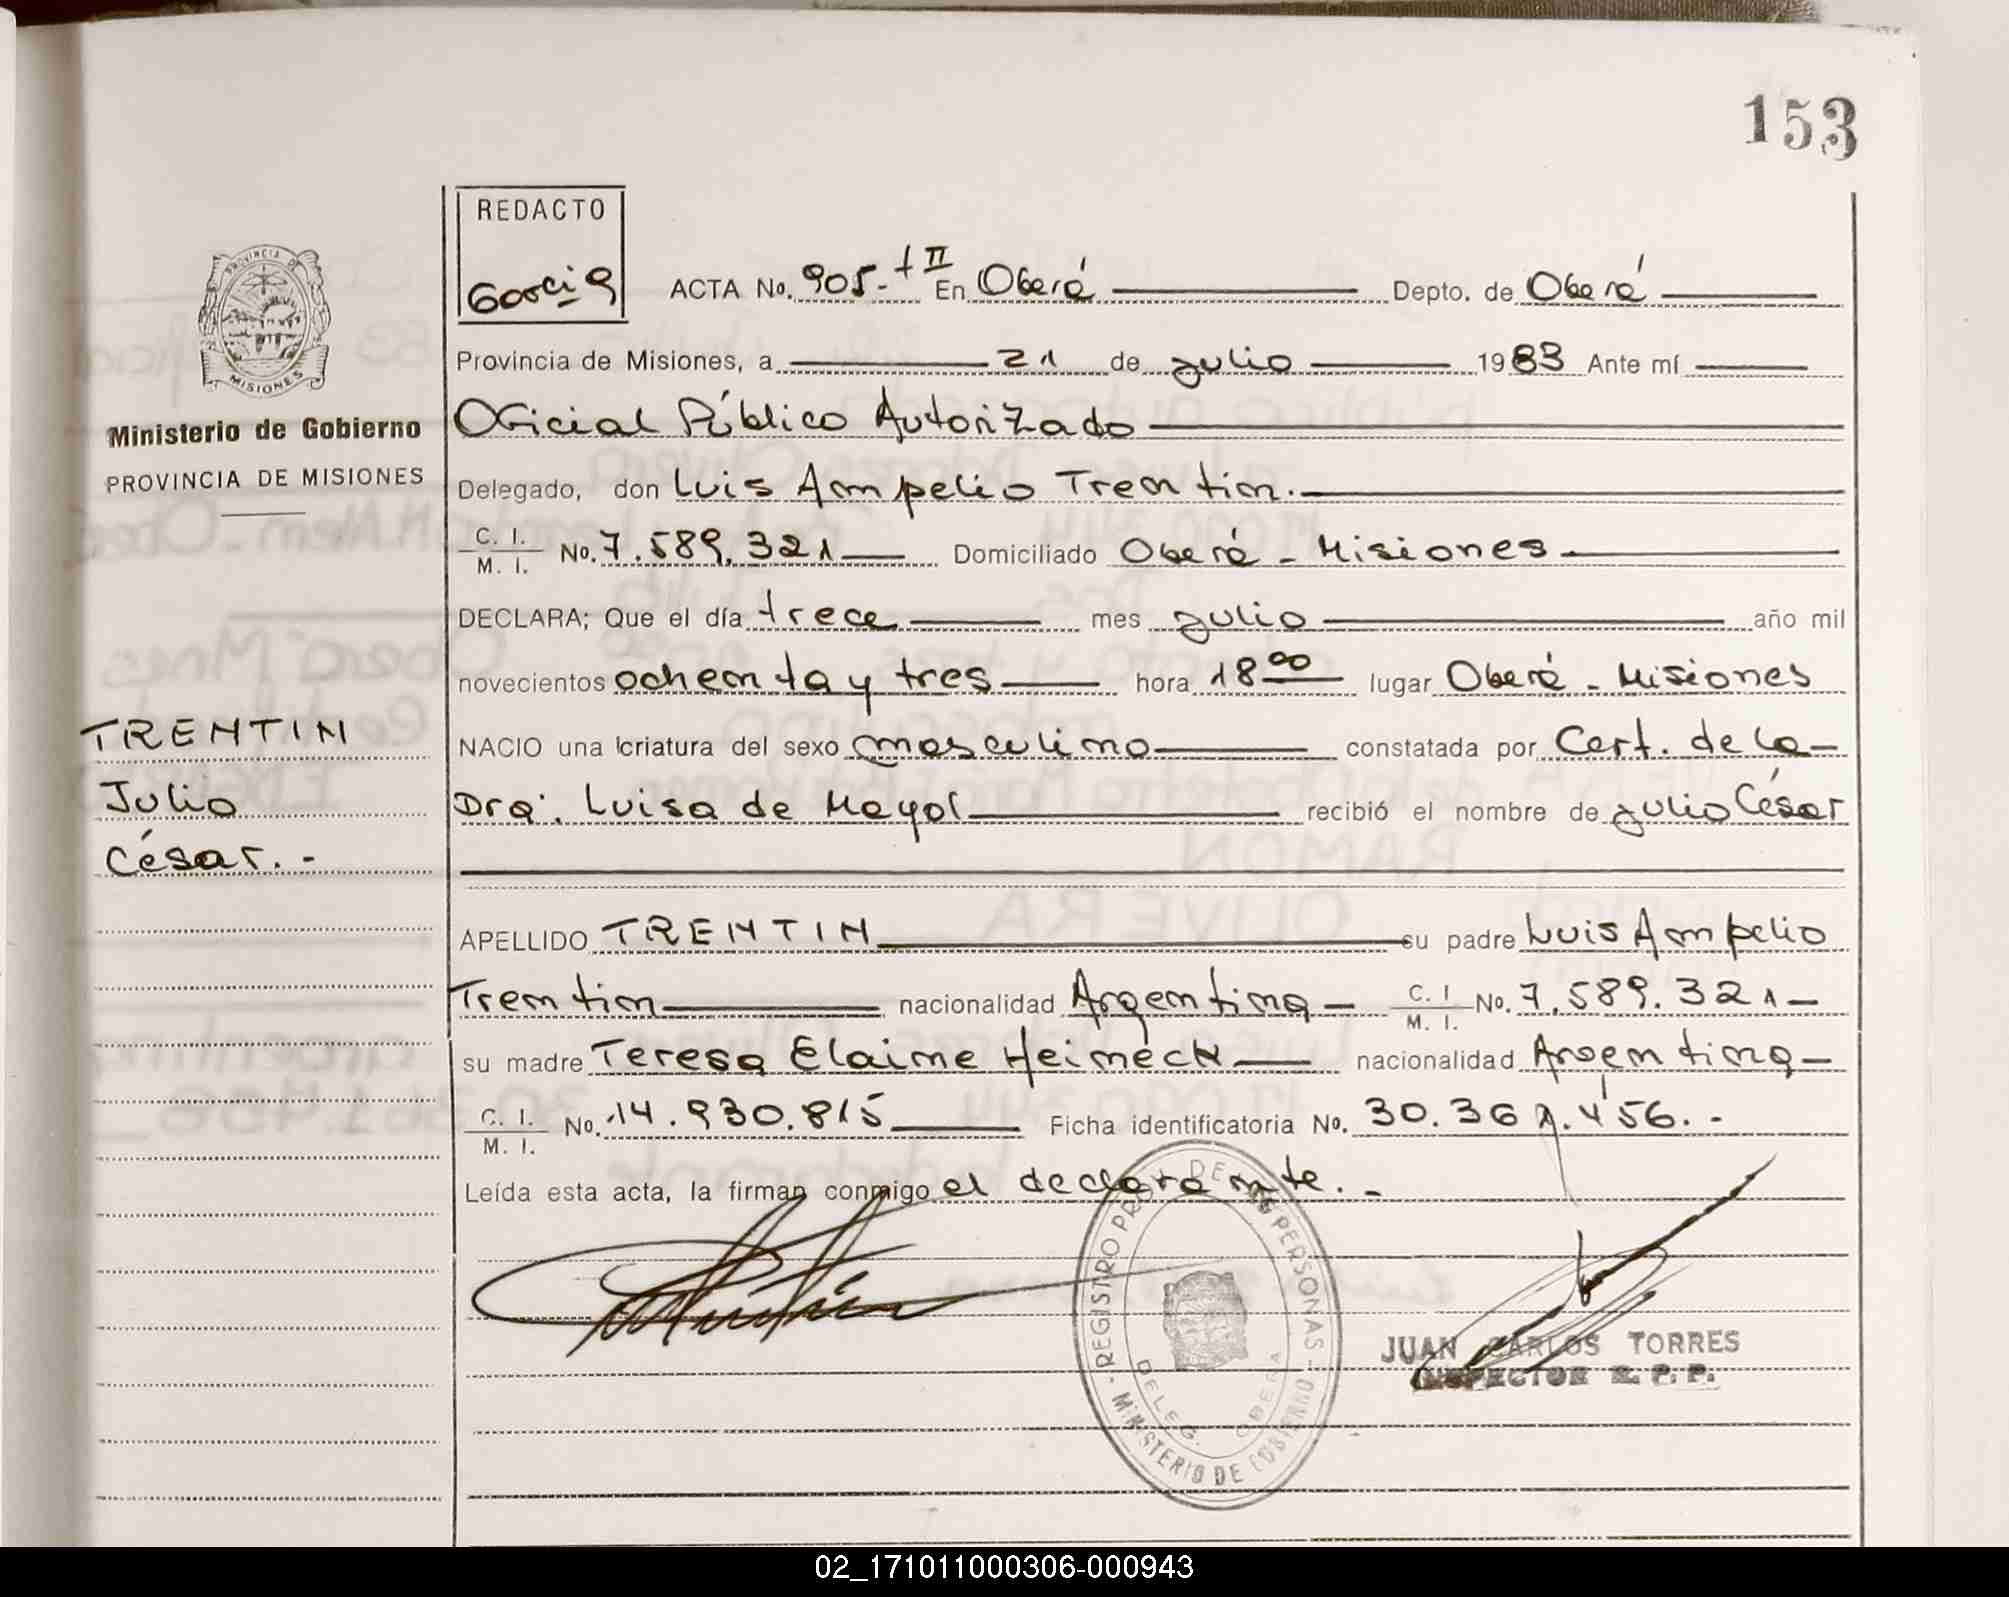 153
REDACTO
ACTA No. 905-tII En Oberá Depto. de Oberá
PROVINCIA DE
MISIONES
Provincia de Misiones, a 21 de julio 1983 Ante mí
Ministerio de Gobierno
PROVINCIA DE MISIONES
Oficial Público Autorizado
Delegado, don Luis Ampelio Trentin.
C. I.
M. I. No. 7.589.321 Domiciliado Oberá - Misiones
DECLARA; Que el día trece mes julio año mil
novecientos ochenta y tres hora 18 00 lugar Oberá - Misiones
TRENTIN
Julio
César.-
NACIO una criatura del sexo masculino constatada por Cert. de la
Dra. Luisa de Mayol recibió el nombre de Julio César
APELLIDO TRENTIN su padre Luis Ampelio
Trentin nacionalidad Argentina C. I
M. I. No. 7.589.321
su madre Teresa Elaine Heineck nacionalidad Argentina
C. I.
M. I. No. 14.930.815 Ficha identificatoria No. 30.361.456.-
Leída esta acta, la firman conmigo el declarante.-
REGISTRO DE LAS PERSONAS - MINISTERIO DE GOBIERNO
DELEG. OBERA
JUAN CARLOS TORRES
INSPECTOR R. P. P.
02_171011000306-000943